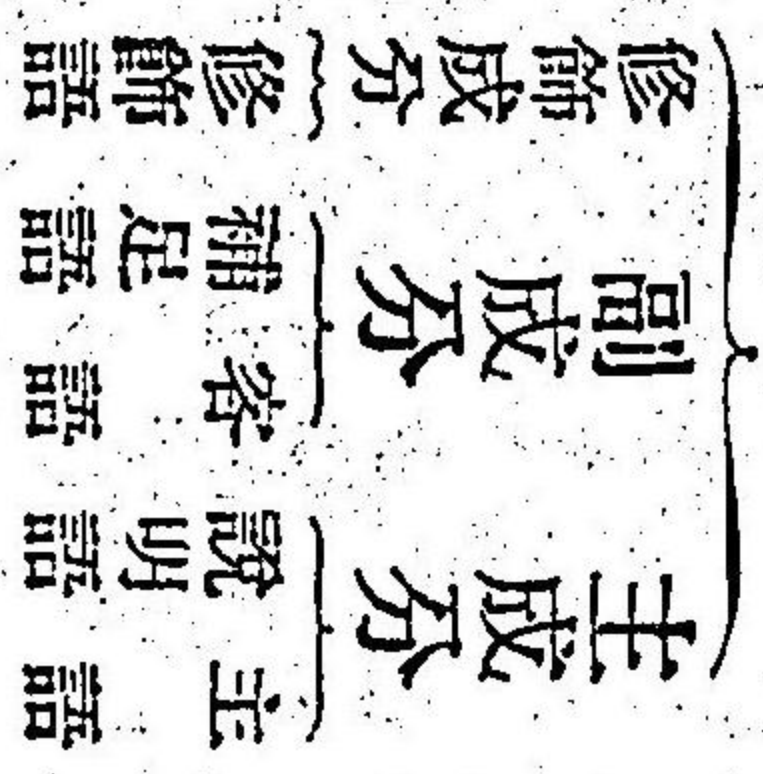 主成分
主語
說明語
副成分
客語
補足語
修飾成分
修飾語